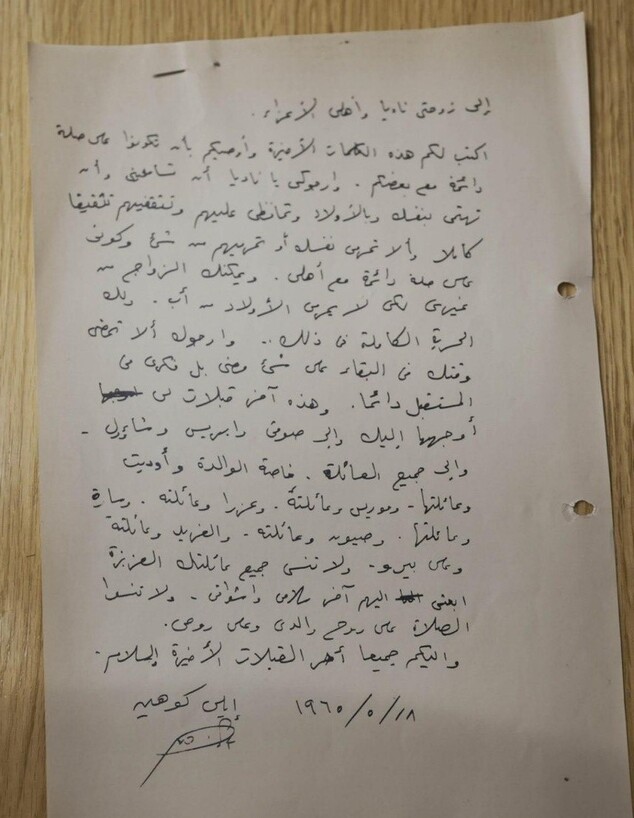 إلى زوجتي ناديا وأهلي الأعزاء.
اكتب لكم هذه الكلمات الأخيرة وأوصيكم بأن تكونوا على صلة
دائمة مع بعضكم. وارجوكي يا ناديا أن تسامحيني وأن
تهتمي بنفسك وبالأولاد وتحافظي عليهم وتثقفيهم تثقيفا
كاملا وألا تحرمي نفسك أو تحرميهم من شئ وكوني
على صلة دائمة مع أهلي. ويمكنك الزواج من
غيري لكي لا يحرمن الأولاد من أب. ولك
الحرية الكاملة في ذلك.. وارجوك ألا تمضي
وقتك في البكاء على شئ مضى بل فكري في
المستقبل دائما. وهذه آخر قبلات لي
أوجهها إليك وإلى صوفي وايريس وشاؤول -
وإلى جميع العائلة. خاصة الوالدة وأوديت
وعائلتها - وموريس وعائلتة. وعزرا وعائلته. وسارة
وعائلتها. وصيون وعائلته - والفريد وعائلتة
ولا تنسي جميع عائلتك العزيزة
ابعثي اليهم آخر سلامي واشواقي - ولا تنسوا
الصلاة على روح والدي وعلى روحي.
واليكم جميعا آخر القبلات الأخيرة والسلام -
إيلي كوهين ١٨/٥/١٩٦٥